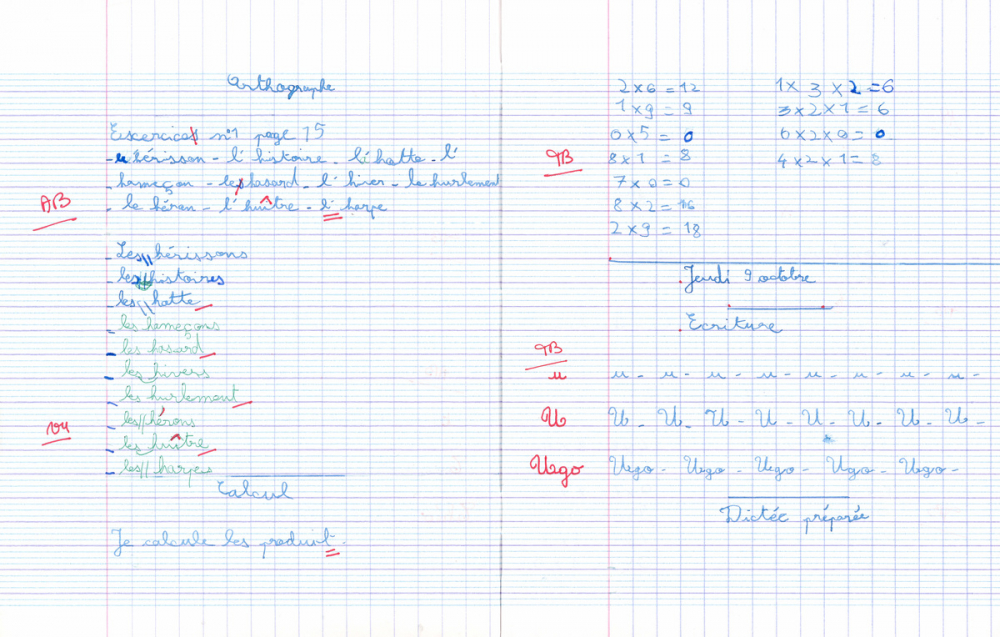 Orthographe
Exercice n°1 page 75
AB
- le hérisson - l'histoire - l'hatte - l'
hameçon - le hasard - l'hiver - le hurlement
- le héron - l'huître - l'harpe
- Les // hérissons
- les histoires
- les // hatte
- les hameçons
- les hasard
- les hivers
- les hurlement
vu
- les // hérons
- les huître
- les // harpes
Calcul
Je calcule les produit.
2 × 6 = 12
1 × 9 = 9
0 × 5 = 0
TB
8 × 1 = 8
7 × 0 = 0
8 × 2 = 16
2 × 9 = 18
1 × 3 × 2 = 6
3 × 2 × 1 = 6
6 × 2 × 0 = 0
4 × 2 × 1 = 8
Jeudi 9 octobre
Ecriture
TB
u u - u - u - u - u - u - u - u -
U U - U - U - U - U - U - U - U -
Ugo Ugo - Ugo - Ugo - Ugo - Ugo -
Dictée préparée